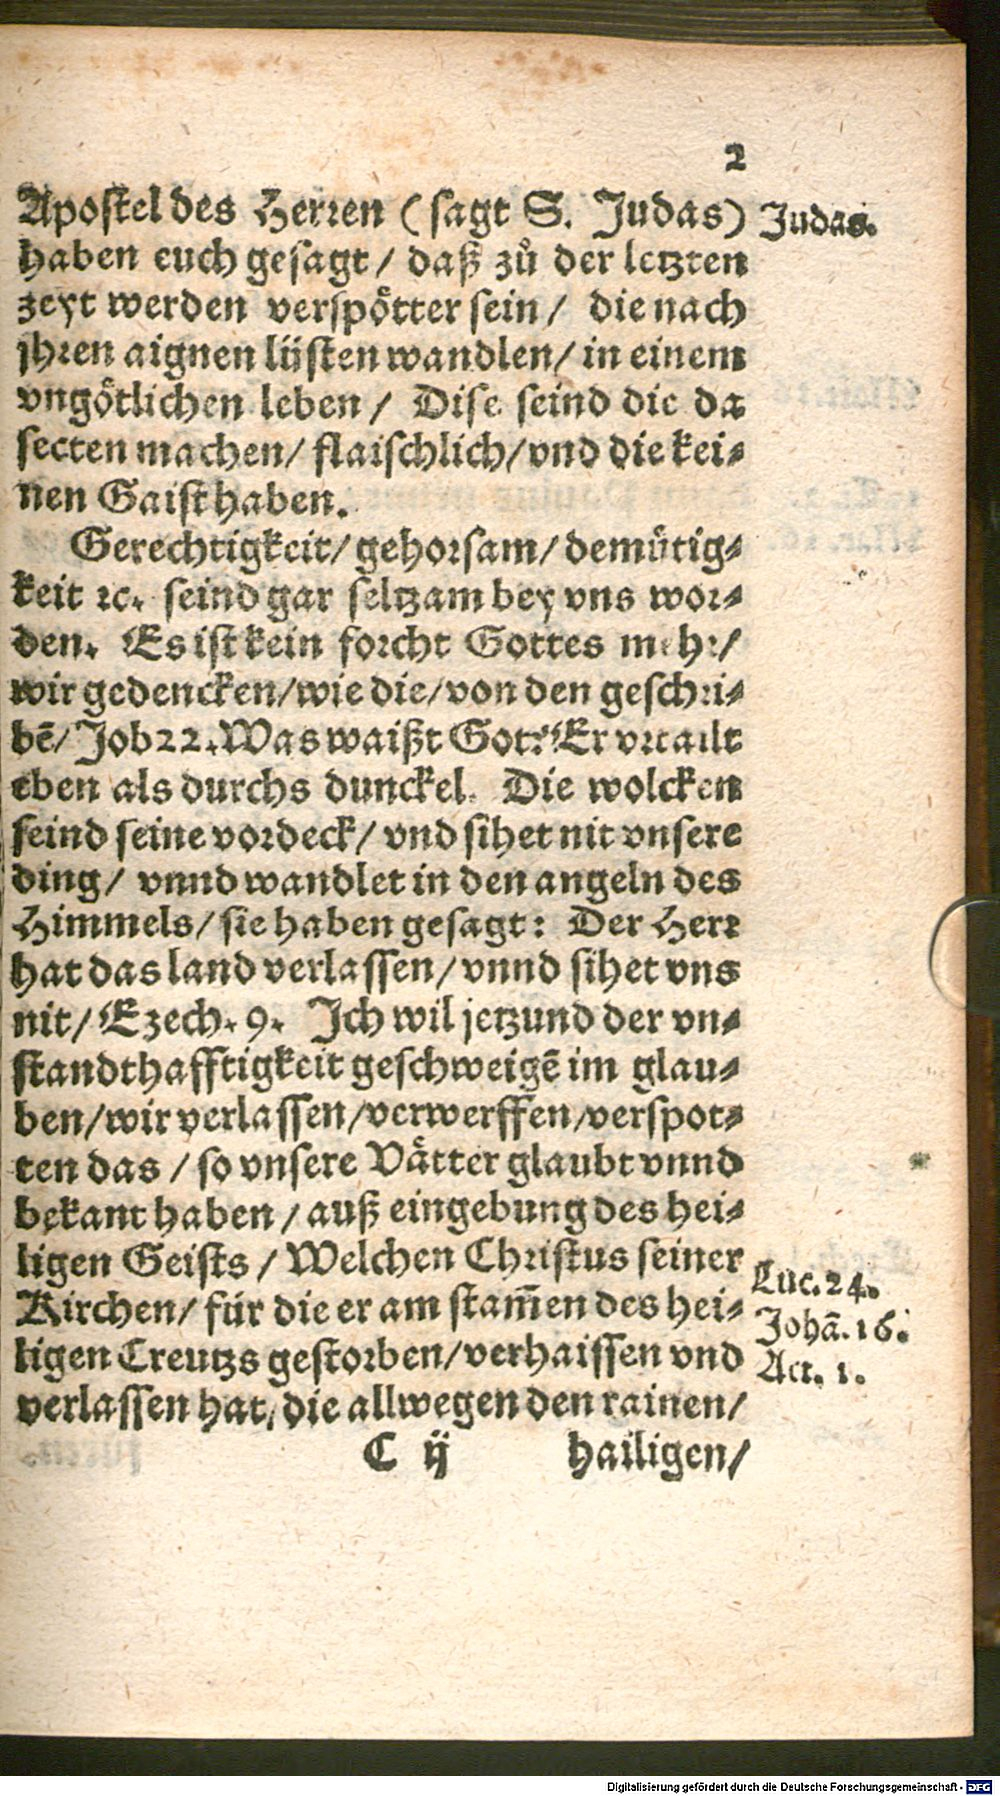 2
Apostel des Herren (sagt S. Judas) Judas.
haben euch gesagt / daß zů der letzten
zeyt werden verspötter sein / die nach
jhren aignen lüsten wandlen / in einem
vngötlichen leben / Dise seind die da
secten machen / flaischlich / vnd die kei⸗
nen Gaist haben.
Gerechtigkeit / gehorsam / demütig⸗
keit ꝛc. seind gar seltzam bey vns wor⸗
den. Es ist kein forcht Gottes mehr /
wir gedencken / wie die / von den geschri⸗
bē / Job 22. Was waißt Got? Er vrtailt
eben als durchs dunckel. Die wolcken
seind seine vordeck / vnd sihet nit vnsere
ding / vnnd wandlet in den angeln des
Himmels / sie haben gesagt: Der Herr
hat das land verlassen / vnnd sihet vns
nit / Ezech. 9. Ich wil jetzund der vn⸗
standthafftigkeit geschweigē im glau⸗
ben / wir verlassen / verwerffen / verspot⸗
ten das / so vnsere Vätter glaubt vnnd
bekant haben / auß eingebung des hei⸗
ligen Geists / Welchen Christus seiner Luc. 24.
Kirchen / für die er am stam̄en des hei⸗ Johā. 16.
ligen Creutzs gestorben / verhaissen vnd Act. 1.
verlassen hat, die allwegen den rainen /
C ij hailigen /
Digitalisierung gefördert durch die Deutsche Forschungsgemeinschaft - DFG